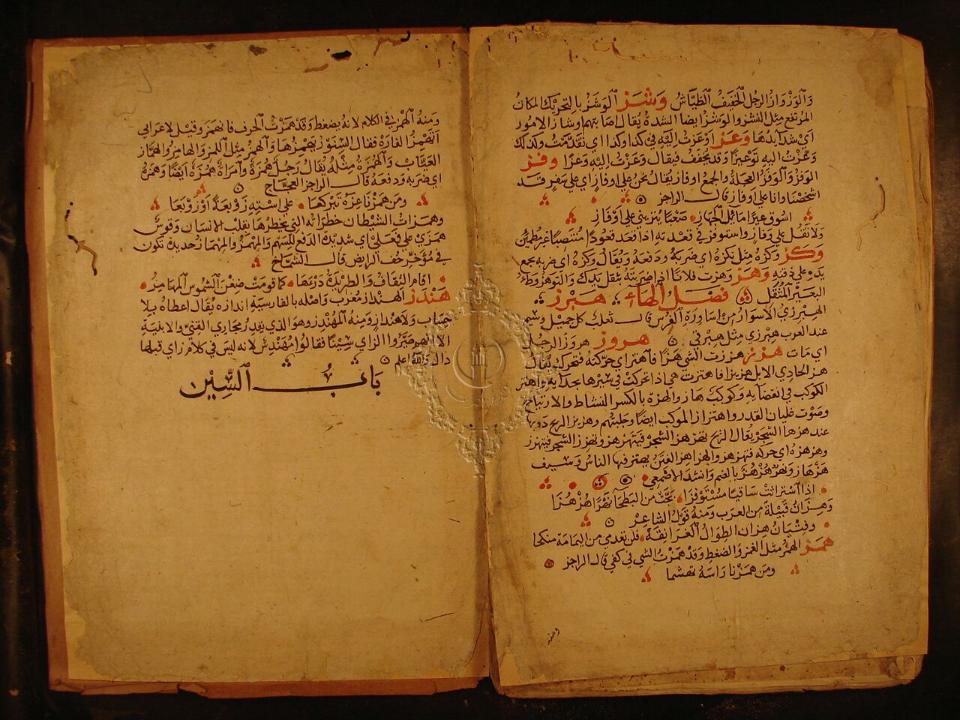 والوزواز الرجل الخفيف الطياش وشز الوشز بالتحريك المكان
المرتفع مثل النشز والوشز ايضا الشدة يقال اصابهم اوشاز الامور
اي شدايدها وعز اوعزت اليه في كذا وكذا اي تقدمت وكذلك
وعزت اليه توعيزا وقد يخفف فيقال وعزت اليه وعزا وفز
الوفز والوفز العجلة والجمع اوفاز يقال نحن على اوفاز اي على سفر قد
اشخصنا وانا على اوفاز قال الراجز
اسوق عيرا مائل الجهاز صعبا ينزيني على اوفاز
ولا تقل على وفاز واستوفز في قعدته اذا قعد قعودا منتصبا غير مطمئن
وكز وكزه مثل نكزه اي ضربه ودفعه ويقال وكزه اي ضربه بجمع
يده على ذقنه وهز وهزت فلانا اذا ضربته بثقل يدك والتوهز وطء
البعير المثقل فصل الهاء هبرز
الهبرزي الاسوار من اساورة الفرس قال ثعلب كل جميل وسيم
عند العرب هبرزي مثل هبرقي هروز هروز الرجل
اي مات هزز هززت الشي هزا فاهتز اي حركته فتحرك يقال
هز الحادي الابل هزيزا فاهتزت هي اذا تحركت في سيرها بحدايه واهتز
الكوكب في انقضاضه وكوكب هاز والهزة بالكسر النشاط والارتياح
وصوت غليان القدر واهتزاز الموكب ايضا وجلبتهم وهزيز الريح دويها
عند هزها الشجر يقال الريح تهزهز الشجر فيتهزهز وتهزز الشجر فيتهزز
وهزهزه اي حركه فتهزهز والهزاهز الفتن يهتز فيها الناس وسيف
هزهاز ونهر هزهز بالضم وانشد الاصمعي
اذا استراثت ساقيا مستوفزا بحت من البطحاء نهرا هزهزا
وهزان قبيلة من العرب ومنه قول الشاعر
وفتيان هزان الطوال الغرانقة فلن تعدمي من اليمامة منكحا
همز الهمز مثل الغمز والضغط وقد همزت الشي في كفي قال الراجز
ومن همزنا راسه تهشما
ومنه الهمز في الكلام لانه يضغط وقد همزت الحرف فانهمز وقيل لاعرابي
اتهمز الفارة فقال السنور يهمزها والهمز مثل اللمز والهامز والهماز
العياب والهمزة مثله يقال رجل همزة وامراة همزة ايضا وهمزه
اي ضربه ودفعه قال الراجز العجاج
ومن همزنا عزه تبركعا على استه زوبعة او زوبعا
وهمزات الشيطان خطراته التي يخطرها بقلب الانسان وقوس
همزى على فعلى اي شديدة الدفع للسهم والمهمز والمهماز حديدة تكون
في مؤخر خف الرايض قال الشماخ
اقام الثقاف والطريدة درءها كما قومت ضغن الشموس المهامز
هندز الهنداز معرب واصله بالفارسية اندازه يقال اعطاه بلا
حساب ولا هنداز ومنه المهندز وهو الذي يقدر مجاري القني والابنية
الا انهم صيروا الزاي سينا فقالوا مهندس لانه ليس في كلام زاي قبلها
دال والله اعلم
باب السين